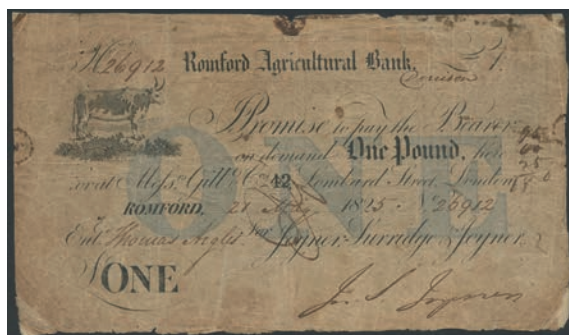 No. 26912 Romford Agricultural Bank, £1.
I Promise to pay the Bearer
on demand One Pound, here
or at Messrs. Gill & Co. 42 Lombard Street, London
ROMFORD, 21 May 1825 No. 26912
For Joyner, Surridge & Joyner,
Entd. Thomas
£ONE
ONE